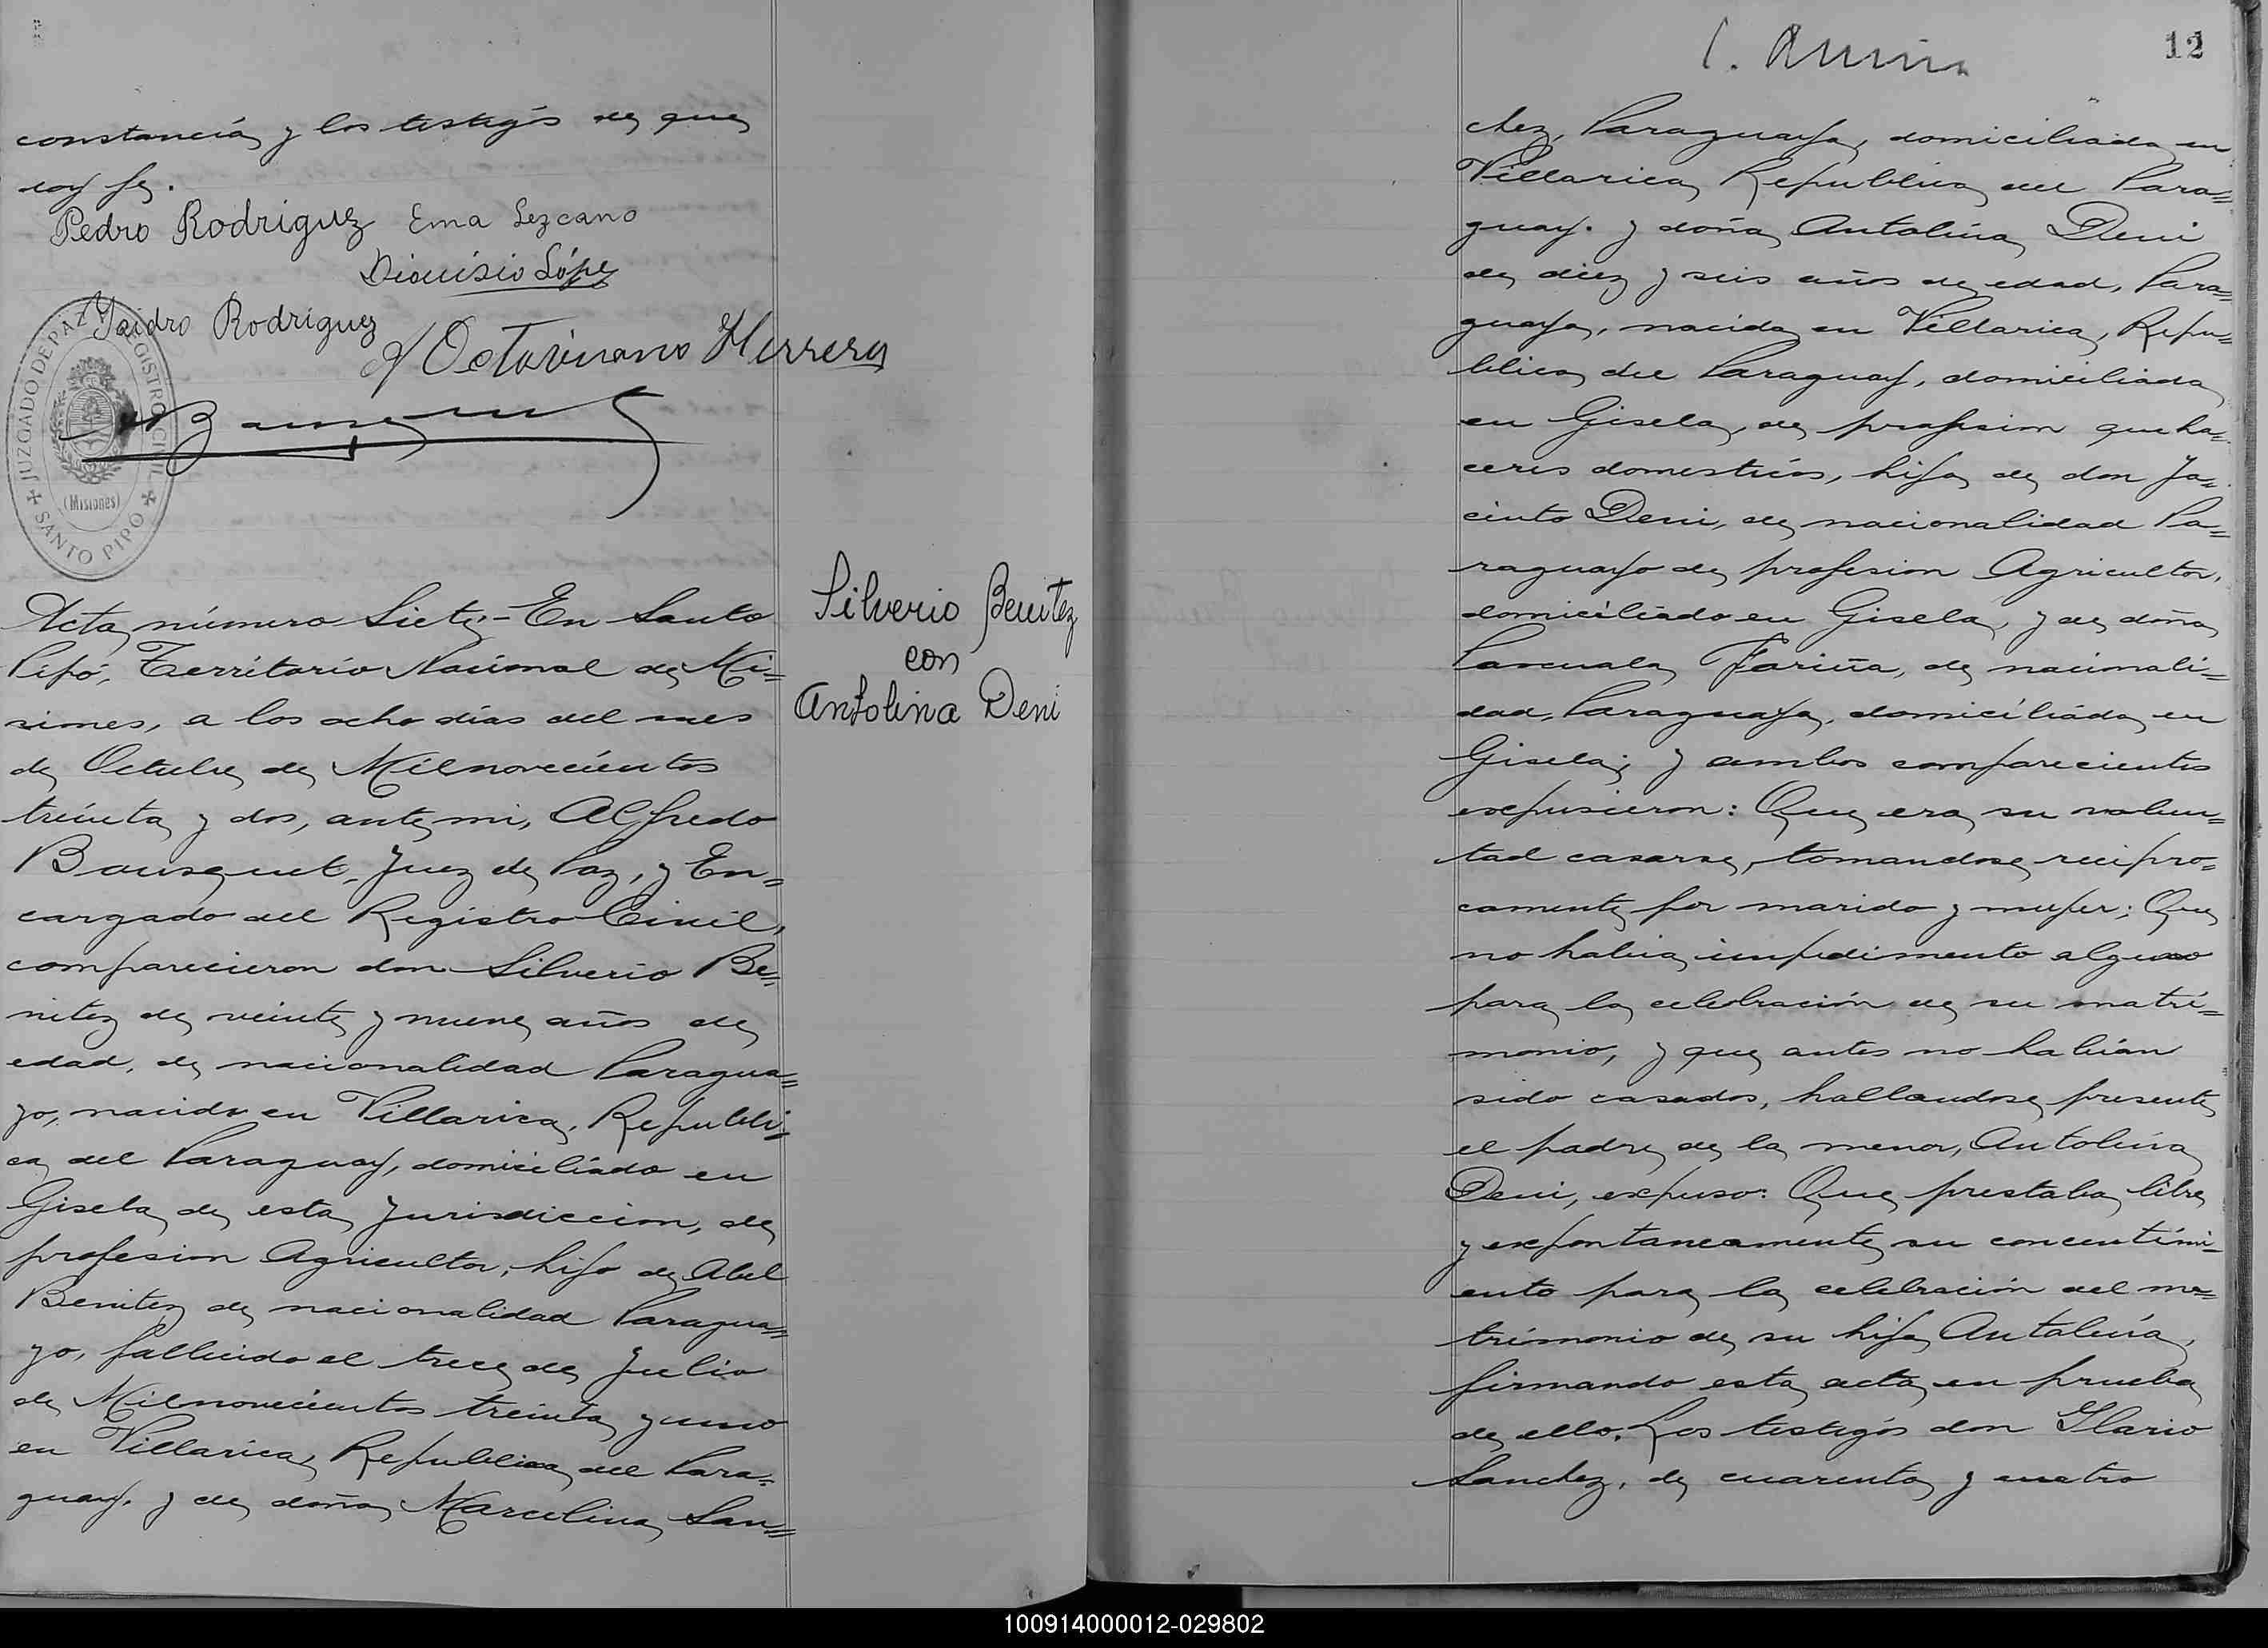 constancia y los testigos de que
doy fe.
Pedro Rodriguez Ema Lezcano
Dionisio López
Ysidro Rodriguez
Octaviano Herrera
JUZGADO DE PAZ Y REGISTRO CIVIL
(Misiones)
SANTO PIPO
Acta número Siete.- En Santo
Pipó, Territorio Nacional de Mi=
siones, a los ocho dias del mes
de Octubre de Milnovecientos
treinta y dos, ante mi, Alfredo
Bousquet, Juez de Paz, y En=
cargado del Registro Civil,
comparecieron don Silverio Be=
nitez de veinte y nueve años de
edad, de nacionalidad Paragua=
yo, nacido en Villarica, Republi=
ca del Paraguay, domiciliado en
Gisela de esta Jurisdiccion, de
profesion Agricultor, hijo de Abel
Benitez de nacionalidad Paragua=
yo, fallecido el trece de Julio
de Milnovecientos treinta y uno
en Villarica, Republica del Para=
guay, y de doña Marcelina San=
Silverio Benitez
con
Antolina Deni
12
chez, Paraguaya, domiciliada en
Villarica, Republica del Para=
guay. y doña Antolina Deni
de diez y seis años de edad, Para=
guaya, nacida en Villarica, Repu=
blica del Paraguay, domiciliada
en Gisela, de profesion queha=
ceres domesticos, hija de don Ja=
cinto Deni, de nacionalidad Pa=
raguayo de profesion Agricultor,
domiciliado en Gisela, y de doña
Pascuala Fariña, de nacionali=
dad, Paraguaya, domiciliada en
Gisela; y ambos comparecientes
expusieron: Que era su volun=
tad casarse, tomandose recipro=
camente por marido y mujer; Que
no habia impedimento alguno
para la celebración de su matri=
monio, y que antes no habian
sido casados, hallandose presente
el padre de la menor, Antolina
Deni, expuso: Que prestaba libre
y expontaneamente su concentimi=
ento para la celebración del ma=
trimonio de su hija Antolina,
firmando esta acta en prueba
de ello. Los testigos don Ilario
Sanchez, de cuarenta y cuatro
100914000012-029802